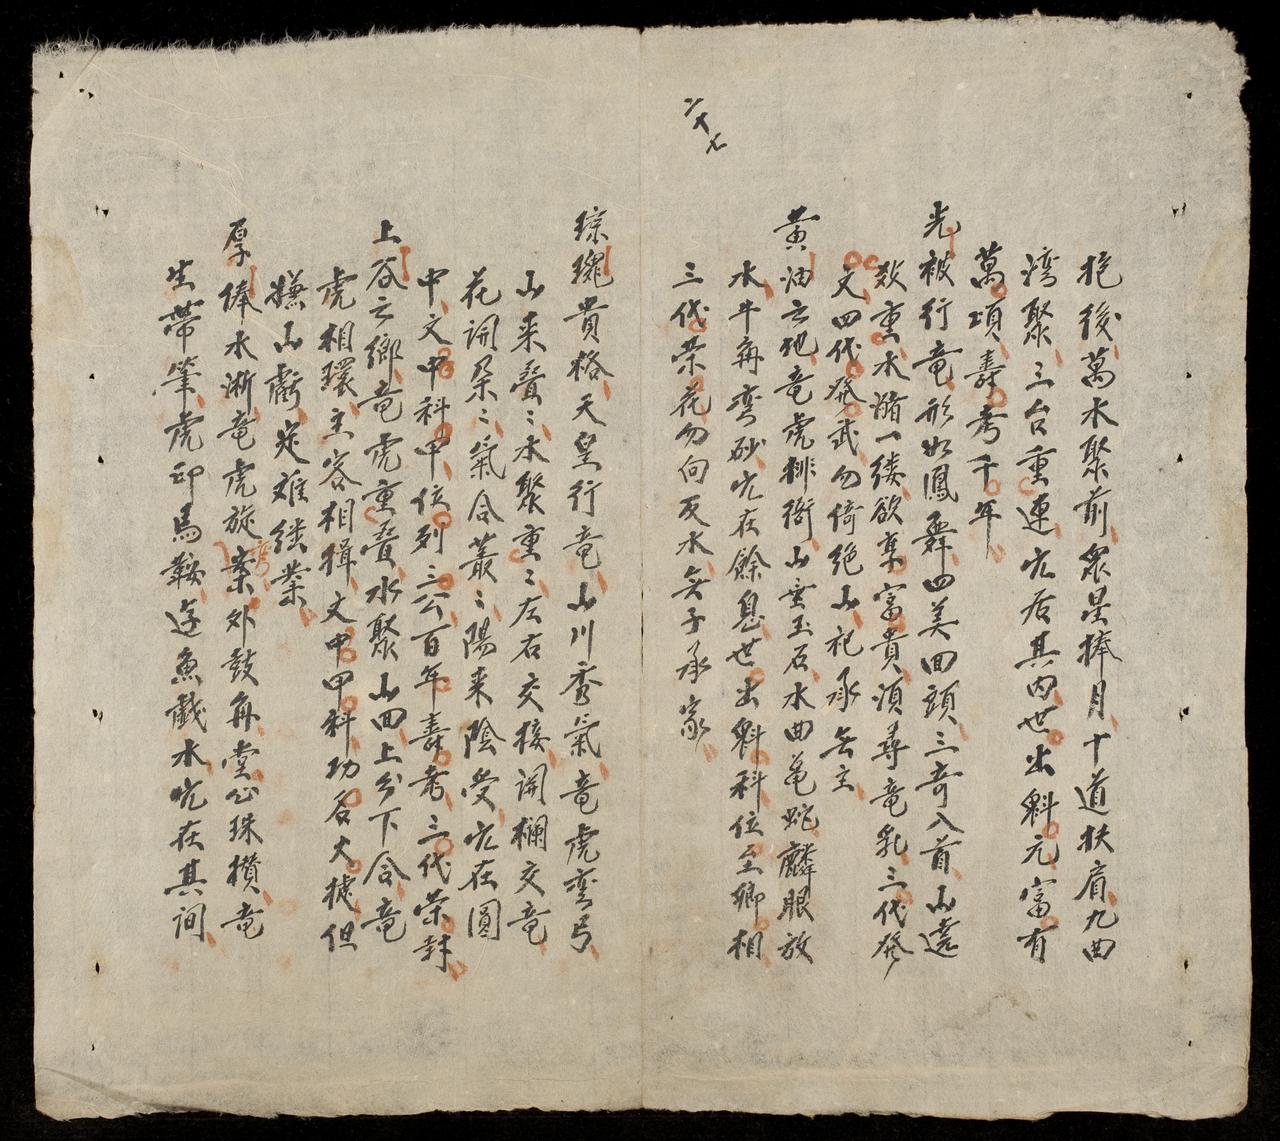 二十七
抱後萬水聚前眾星捧月十道扶肩九曲
湾聚三台重連穴居其内世出魁元富有
萬項壽考千年
光被行竜形如鳳舞四美回頭三奇入首山遶
数重水潴一缕欲求富貴須尋竜乳三代発
文四代発武勿倚絶山祀承无主
黄油云地竜虎排衙山垂玉石水曲亀蛇麟眼放
水牛角弯砂穴在餘息世出魁科位至卿相
三代荣花勿向反水无子承家
琮瑰貴格天皇行竜山川秀氣竜虎弯弓
山来叠〻水聚重〻左右交接闭欄交竜
花開朵〻氣合叢〻陽来陰受穴在圓
中文中科甲位列三公百年壽考三代荣封
上谷云鄉竜虎重叠水聚山回上分下合竜
虎相環主客相揖文中甲科功名大捷但
嫌山虧定难缕業
厚俸水淅竜虎旋弯案外鼓角堂心珠攢竜
生帶筆虎印馬鞍逰魚戲水穴在其间